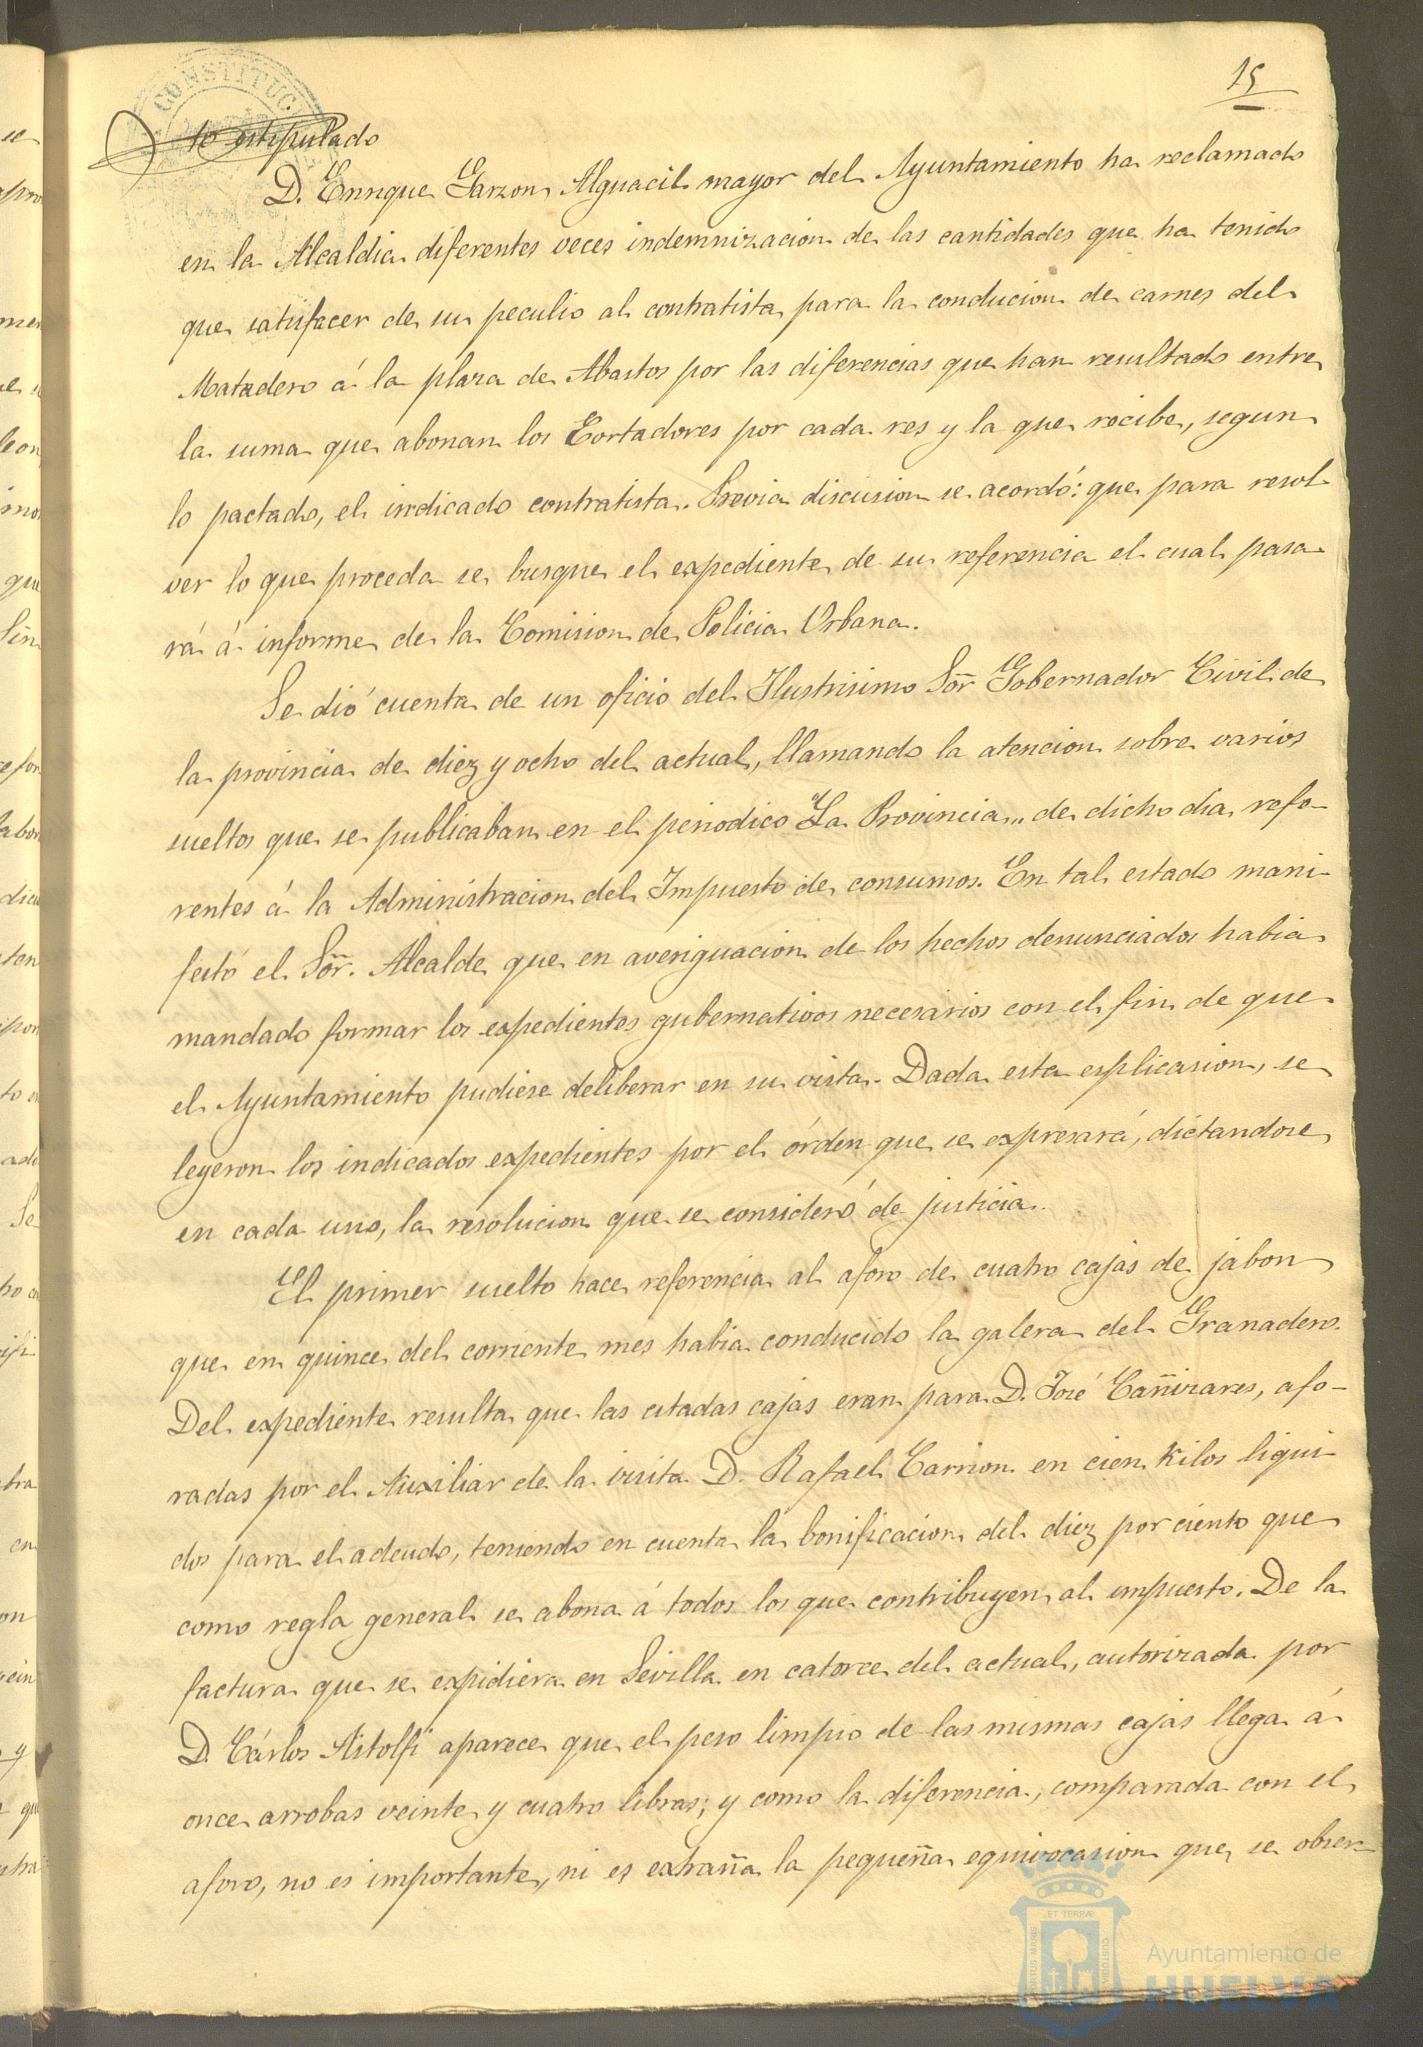 15
CONSTITUC
to estipulado
D. Enrique Garzon, Alguacil mayor del Ayuntamiento ha reclamado
en la Alcaldia diferentes veces indemnizacion de las cantidades que ha tenido
que satisfacer de su peculio al contratista para la conducion de carnes del
Matadero á la plaza de Abastos por las diferencias que han resultado entre
la suma que abonan los Cortadores por cada res y la que recibe, segun
lo pactado, el indicado contratista. Previa discusion se acordó: que para resol
ver lo que proceda se busque el expediente de su referencia el cual pasa
rá á informe de la Comision de Policia Urbana.
Se dió cuenta de un oficio del Ilustrisimo Sõr Gobernador Civil de
la provincia de diez y ocho del actual, llamando la atencion sobre varios
sueltos que se publicaban en el periodico "La Provincia" de dicho dia, refe-
rentes á la Administracion del Impuesto de consumos. En tal estado mani-
festó el Sõr. Alcalde que en averiguacion de los hechos denunciados habia
mandado formar los expedientes gubernativos necesarios con el fin de que
el Ayuntamiento pudiese deliberar en su vista. Dada esta esplicasion, se
leyeron los indicados expedientes por el órden que se expresará, dictandose
en cada uno, la resolucion que se consideró de justicia.
El primer suelto hace referencia al aforo de cuatro cajas de jabon
que en quince del corriente mes habia conducido la galera del Granadero.
Del expediente resulta que las citadas cajas eran para D. José Cañizares, afo-
radas por el Auxiliar de la visita D. Rafael Carrion en cien Kilos liqui-
dos para el adeudo, teniendo en cuenta la bonificacion del diez por ciento que
como regla general se abona á todos los que contribuyen al impuesto. De la
factura que se expidiera en Sevilla en catorce del actual, autorizada por
D. Cárlos Astolfi aparece que el peso limpio de las mismas cajas llega á
once arrobas veinte y cuatro libras; y como la diferencia, comparada con el
aforo, no es importante, ni es extraña la pequeña equivocasion que se obser-
Ayuntamiento de
HUELVA